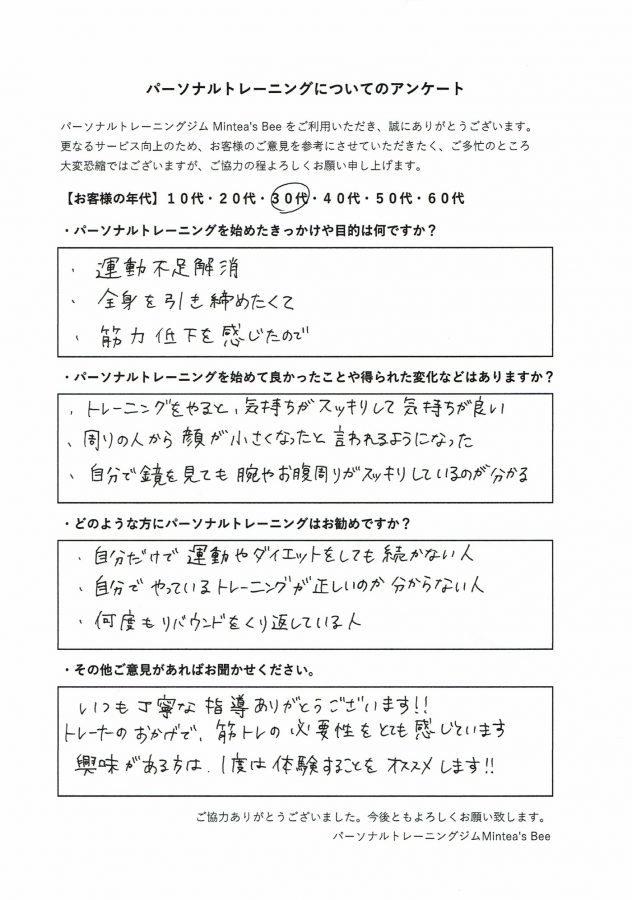 パーソナルトレーニングについてのアンケート
パーソナルトレーニングジム Mintea's Bee をご利用いただき、誠にありがとうございます。
更なるサービス向上のため、お客様のご意見を参考にさせていただきたく、ご多忙のところ
大変恐縮ではございますが、ご協力の程よろしくお願い申し上げます。
【お客様の年代】１０代・２０代・３０代・４０代・５０代・６０代
・パーソナルトレーニングを始めたきっかけや目的は何ですか？
、運動不足解消
、全身を引き締めたくて
、筋力低下を感じたので
・パーソナルトレーニングを始めて良かったことや得られた変化などはありますか？
、トレーニングをやると、気持ちがスッキリして気持ちが良い
、周りの人から顔が小さくなったと言われるようになった
、自分で鏡を見ても腕やお腹周りがスッキリしているのが分かる
・どのような方にパーソナルトレーニングはお勧めですか？
・自分だけで運動やダイエットをしても続かない人
、自分でやっているトレーニングが正しいのか分からない人
、何度もリバウンドをくり返している人
・その他ご意見があればお聞かせください。
いつも丁寧な指導ありがとうございます!!
トレーナーのおかげで、筋トレの必要性をとても感じています
興味がある方は、1度は体験することをオススメします!!
ご協力ありがとうございました。今後ともよろしくお願い致します。
パーソナルトレーニングジムMintea's Bee